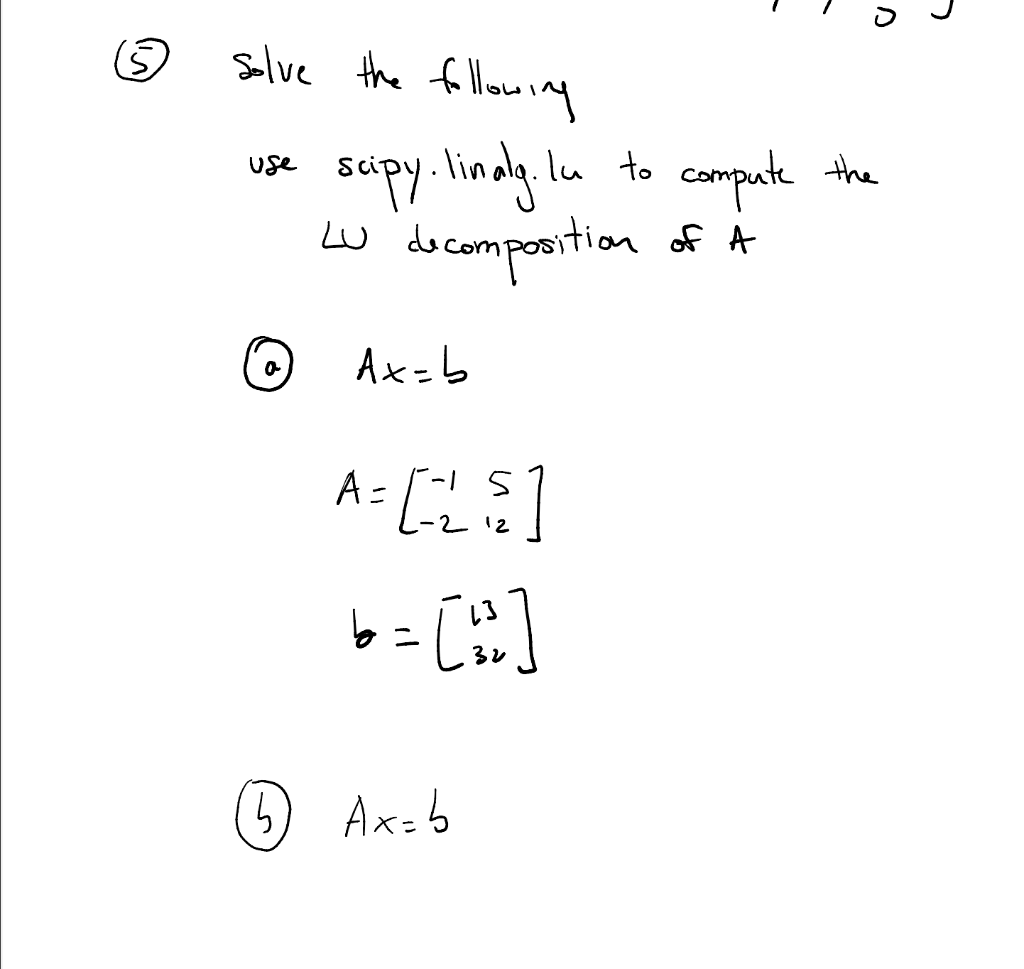 ⑤ Solve the following
use scipy.linalg.lu to compute the
LU decomposition of A
ⓐ Ax=b
A = [-1 5
-2 12]
b = [13
32]
ⓑ Ax=b